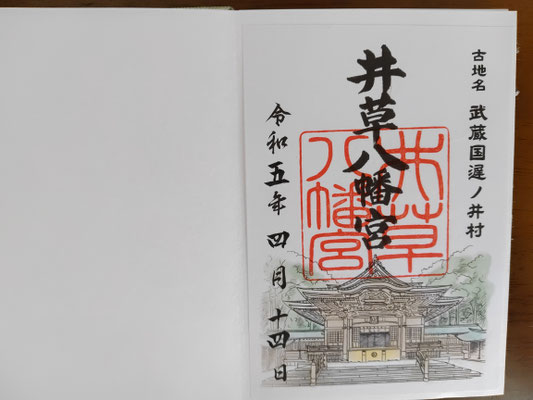 古地名 武蔵国遅ノ井村
井草八幡宮
井草八幡宮
令和五年 四月 十四日